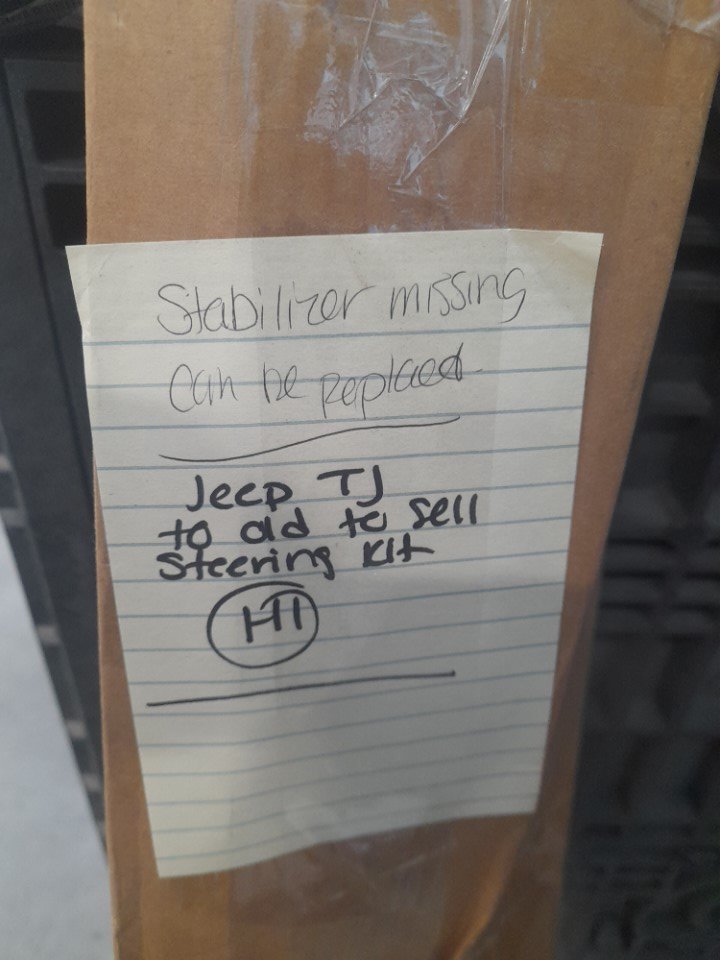 Stabilizer missing
can be replaced
Jeep TJ
to ad to sell
Steering Kit
HI